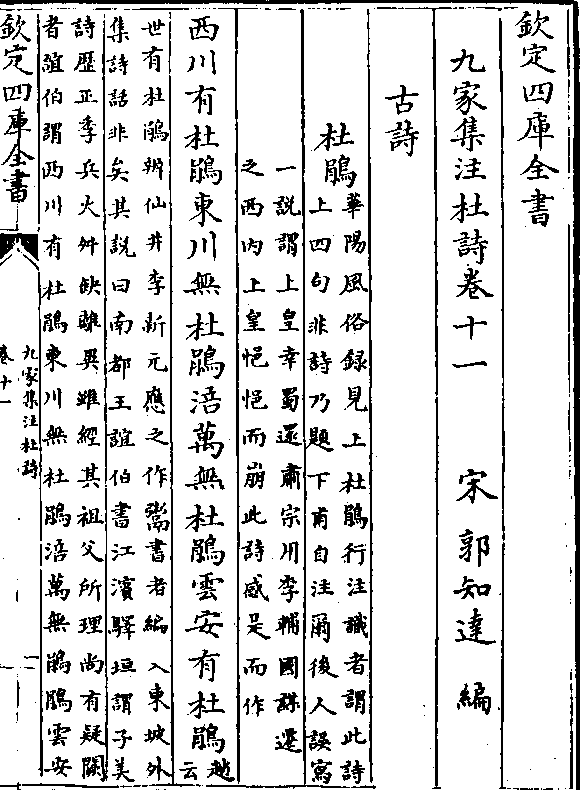 欽定四庫全書
九家集注杜詩卷十一　宋　郭知達　編
古詩
杜鵑
華陽風俗録見上杜鵑行注識者謂此詩
上四句非詩乃題下甫自注爾後人誤寫
一説謂上皇幸蜀還肅宗用李輔國謀遷
之西内上皇悒悒而崩此詩感是而作
西川有杜鵑東川無杜鵑涪萬無杜鵑雲安有杜鵑
趙
云
世有杜鵑辨仙井李新元應之作鬻書者編入東坡外
集詩話非矣其説曰南都王誼伯書江濱驛垣謂子美
詩歴正李兵火舛缺離異雖經其祖父所理尚有疑闕
者誼伯謂西川有杜鵑東川無杜鵑涪萬無鵑鵑雲安
欽定四庫全書
九家集注杜詩
卷十一
一